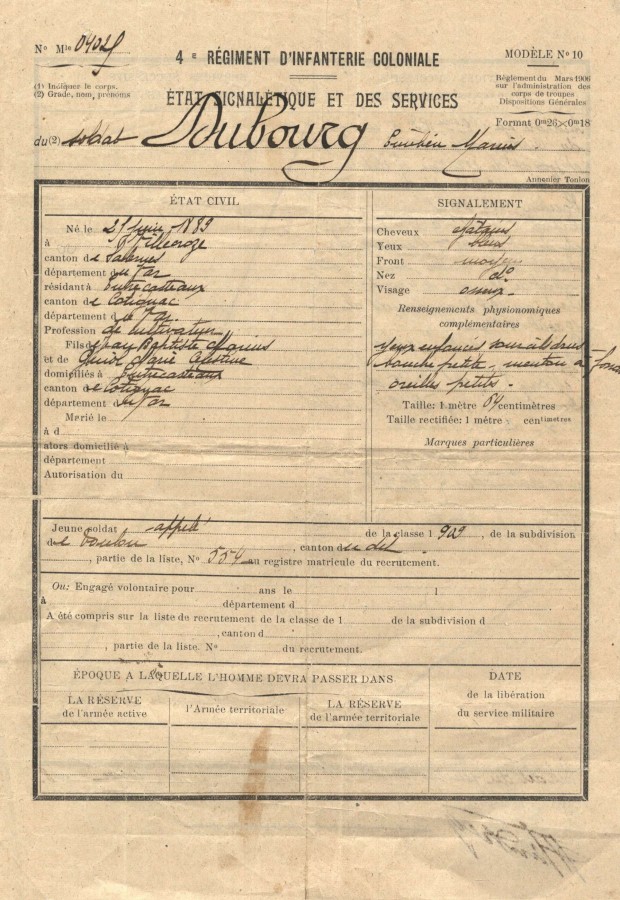 No Mle
4e RÉGIMENT D'INFANTERIE COLONIALE
MODÈLE No 10
(1) Indiquer le corps.
(2) Grade, nom, prénoms
Réglement du Mars 1906
sur l'administration des
corps de troupes
Dispositions Générales
ÉTAT SIGNALÉTIQUE ET DES SERVICES
Format 0m26×0m18
du (2) soldat Dubourg Marius
Armanier Toulon
ÉTAT CIVIL
Né le juin 1889
à Villecroze
canton de Salernes
département du Var
résidant à Entrecasteaux
canton de Cotignac
département du Var
Profession de cultivateur
Fils de Jean Baptiste Marius
et de Marie
domiciliés à Entrecasteaux
canton de Cotignac
département du Var
Marié le
à d
alors domicilié à
département
Autorisation du
SIGNALEMENT
Cheveux
Yeux bleus
Front moyen
Nez do
Visage osseux
Renseignements physionomiques
complémentaires
yeux enfoncés
bouche petite menton à
oreilles petites
Taille: 1 mètre 64 centimètres
Taille rectifiée: 1 mètre centimètres
Marques particulières
Jeune soldat appelé de la classe 1909, de la subdivision
de Toulon, canton du dit
, partie de la liste, No 554 au registre matricule du recrutement.
Ou: Engagé volontaire pour ans le 1
à département d
A été compris sur la liste de recrutement de la classe de 1 de la subdivision d
, canton d
, partie de la liste. No du recrutement.
ÉPOQUE A LAQUELLE L'HOMME DEVRA PASSER DANS
LA RÉSERVE
de l'armée active
l'Armée territoriale
LA RÉSERVE
de l'armée territoriale
DATE
de la libération
du service militaire